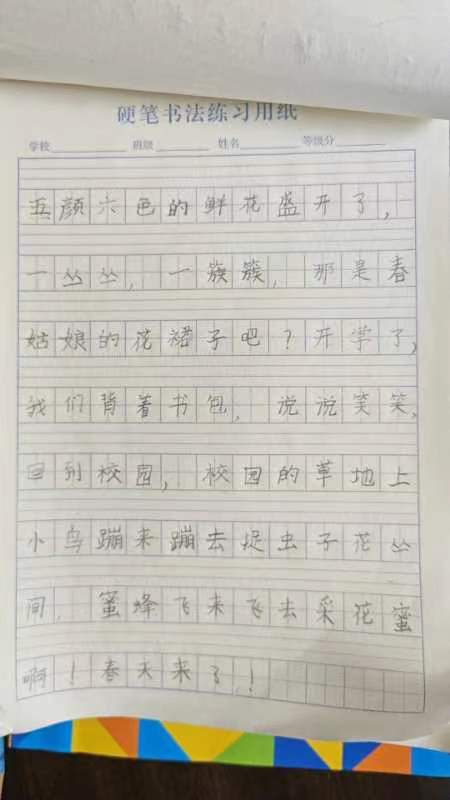 硬笔书法练习用纸
学校 班级 姓名 等级分
五颜六色的鲜花盛开了，一
一丛丛，一簇簇，那是春
姑娘的花裙子吧？开学了，
我们背着书包，说说笑笑，
回到校园，校园的草地上
小鸟蹦来蹦去捉虫子花丛
间，蜜蜂飞来飞去采花蜜
啊！春天来了！